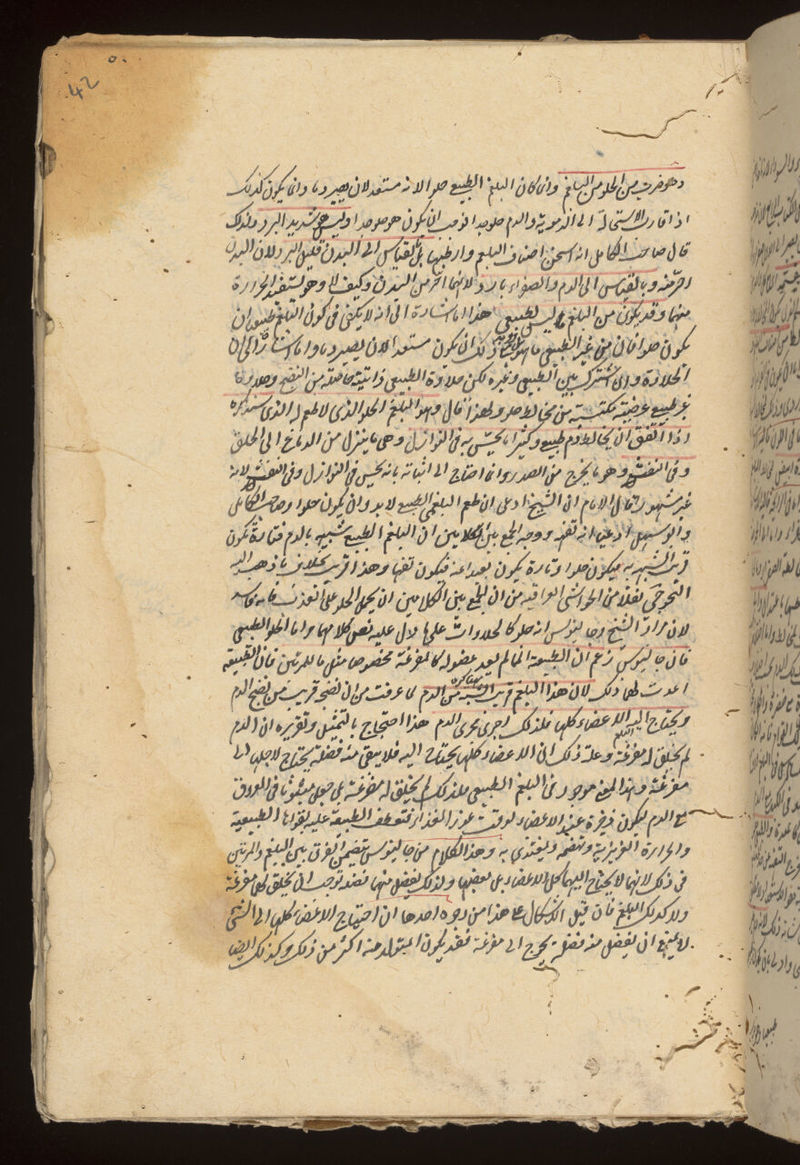 42
وهو ضرب من الحلو من البلغم وان كان البلغم الطبيعي حلوا لانه مستعد لان يصير دما وانما يكون كذلك
اذا قارن الاستحالة الى الدموية والدم حلو فوجب ان يكون هو حلوا وليس هو شديد البرد ولذلك
قال صاحب الكامل انه اسخن اصناف البلغم وارطبها بل بالقياس الى البدن قليل البرد لان البدن
احر منه وبالقياس الى الدم والصفراء بارد لانهما احر من البدن وكيف لا وهو يستفيد الحرارة
منهما وقد يكون من البلغم الحلو ما ليس بطبيعي هذا اشارة الى انه لا يكفي في كون البلغم طبيعيا ان
يكون حلوا فان من غير الطبيعي ما هو كذلك ان يكون مستعدا لان يصير دما واما اشارة الى ان
الحلاوة وان اشترك بين الطبيعي وغيره لكن حلاوة الطبيعي ذاتية حاصلة من النضج وحلاوة
غير طبيعي عرضية مكتسبة من مخالط حلو ولهذا قال وهو البلغم الحلو الذي لا طعم له الذي سنذكره
اذا اتفق ان يخالطه دم طبيعي وكثيرا ما يحس به في النوازل وهي ما ينزل من الدماغ الى الحلق
وفي النفث وهو ما يخرج من الصدر وانما احتاج الى اثباته بانه يحس في النوازل وفي النفث لانه
غير مشهور وقال الامام ان الشيخ ادعى ان طعم البلغم الطبيعي لا بد وان يكون حلوا وصاحب الكامل
وابو سهل ادعيا انه تفه ووجه الجمع بين الكلامين ان البلغم الطبيعي شبيه بالدم فتارة يكون
قريب الشبه به فيكون حلوا وتارة يكون بعيدا عنه فيكون تفها وهذا اقرب بخلاف ما ذهب اليه
الخونجي نقلا من الحواشي العراقية من ان الجمع بين الكلامين ان يحمل الحلو على العذب فانه فاسد
لان مراد الشيخ وجالينوس انه حلو كالحلاوات على ما دل عليه نص كلامهما واما الحلو الطبيعي
فان جالينوس زعم ان الطبيعة انما لم تعد له عضوا كالمفرغة مخصوصا مثل ما للمرتين فان الطبيعة
اعدت لهما ذلك لان هذا البلغم قريب الشبه من الدم لما عرفت من ان نضجه قريب من نضج الدم
ويحتاج اليه الاعضاء كلها فلذلك اجري مجرى الدم هذا احتجاج بالتمثيل وتقريره ان الدم
لم يخلق له مفرغة وعلة ذلك ان الاعضاء كلها يحتاج اليه فلا يبقى منه فضلة يحتاج لاجلها الى
مفرغة وهذا المعنى موجود في البلغم الطبيعي فلذلك لم يخلق له مفرغة بل جعل مبثوثا في العروق
مع الدم ليكون ذخيرة عند الاعضاء لوقت عوز الغذاء فتعطف الطبيعة عليه بقواها الطبيعية
والحرارة الغريزية وتهضمه ويغتذي به وهذا الكلام من جالينوس يتضمن الفرق بين البلغم والمرتين
في ذلك لانهما لا يحتاج اليهما كل الاعضاء بل بعضها ولذلك يفضل منهما فضلة توجب ان يخلق لهما مفرغة
ولا كذلك البلغم فان قيل الاشكال على هذا من وجوه احدها ان احتياج الاعضاء كلها الى الشيء
لا يمنع ان يفضل منه فضلة يحوج الى مفرغة فقد يكون المتولد منه اكثر من ذلك وكذلك ايضا